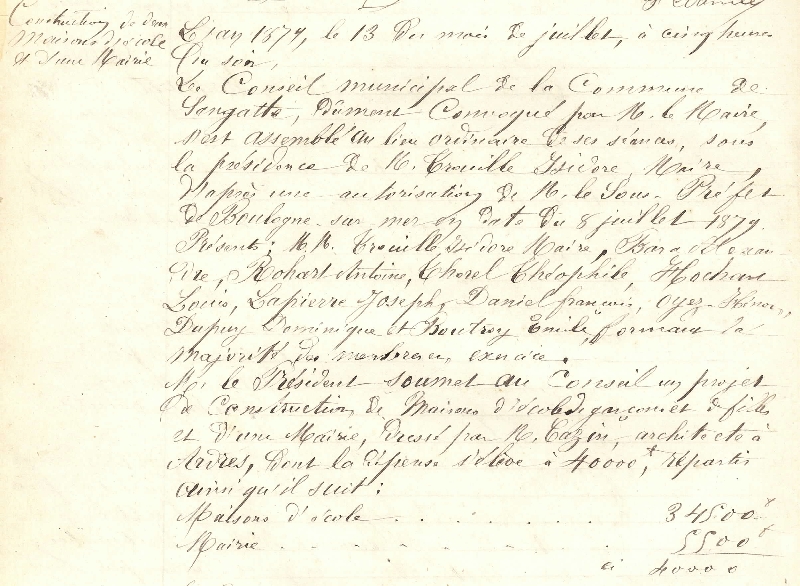 Construction de deux
Maisons d'école
et d'une Mairie
L'an 1879, le 13 du mois de juillet, à cinq heures
du soir,
Le Conseil municipal de la Commune de
Sangatte, dûment Convoqué par M. le Maire,
s'est assemblé au lieu ordinaire de ses séances, sous
la présidence de M. Trouille Isidore, Maire,
d'après une autorisation de M. le Sous-Préfet
de Boulogne-sur-mer en date du 8 juillet 1879.
Présents: M.M. Trouille Isidore Maire, Alexan-
dre, Rohart Antoine, Théophile,
Louis, Lapierre Joseph, Daniel françois,
Dupuy Dominique et Boutroy Emile, formant la
majorité des membres en exercice.
M. le Président soumet au Conseil un projet
de Construction de Maisons d'école de garçons et de filles
et d'une Mairie, dressé par M. Cazin, architecte à
Ardres, dont la dépense s'élève à 40000f, répartis
ainsi qu'il suit:
Maisons d'école . . . . 34500f
Mairie . . . . . . 5500f
ci 40000